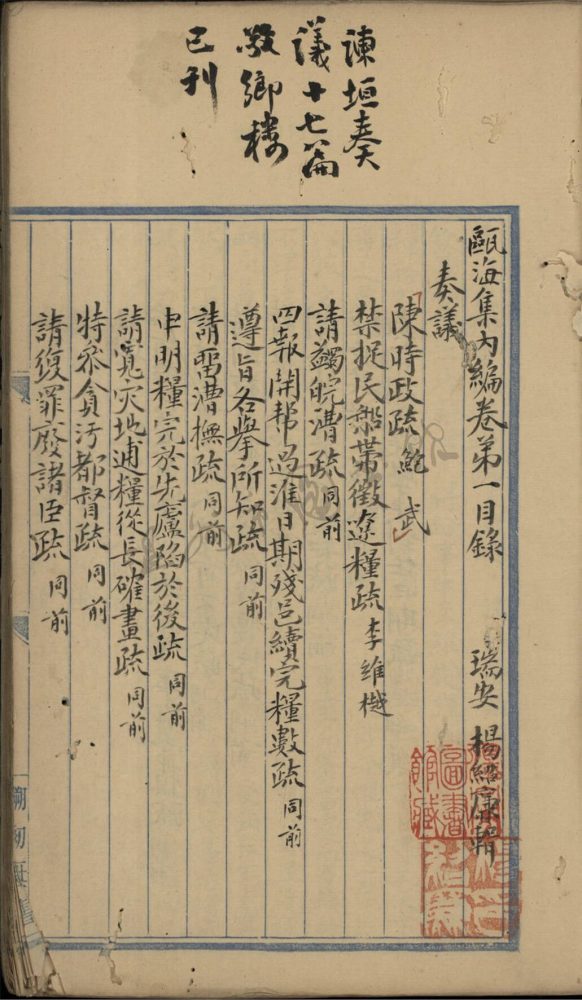 諫垣奏
議十七篇
敬鄉樓
已刊
甌海集內編卷第一目錄 瑞安 楊紹廉輯
奏議
陳時政疏 鮑武
禁捉民船帶徵遼糧疏 李維樾
請蠲皖漕疏 同前
四報開幫過淮日期殘邑續完糧數疏 同前
遵旨各舉所知疏 同前
請留漕撫疏 同前
申明糧完於先廬陷於後疏 同前
請寬灾地逋糧從長確畫疏 同前
特叅貪污都督疏 同前
請復罪廢諸臣疏 同前
圖書
館藏